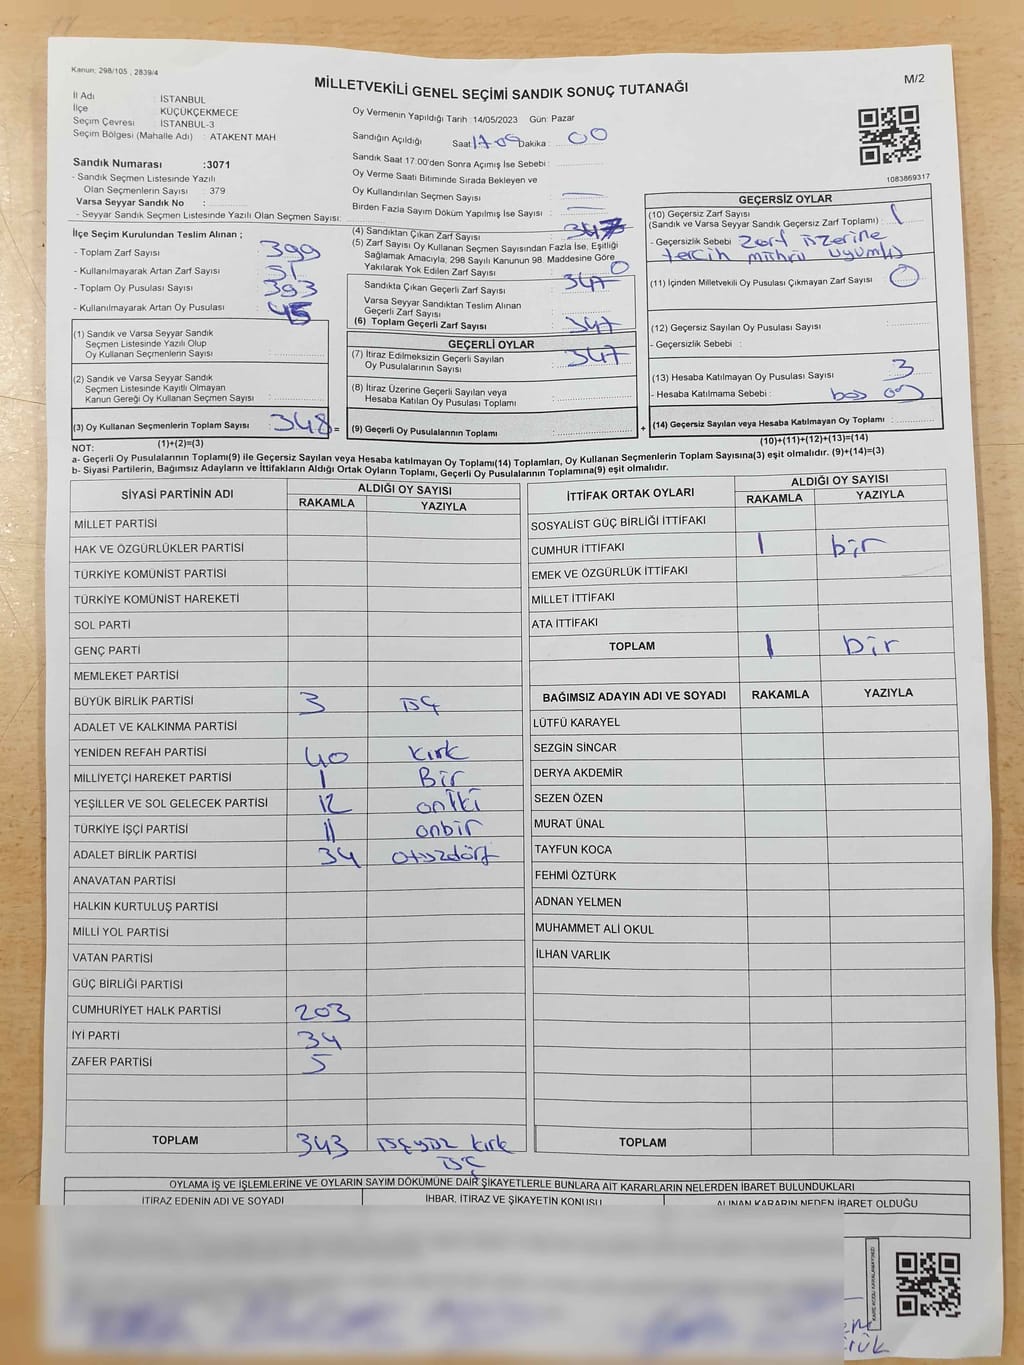 Kanun; 298/105 , 2839/4
MİLLETVEKİLİ GENEL SEÇİMİ SANDIK SONUÇ TUTANAĞI
M/2
İl Adı : İSTANBUL
İlçe : KÜÇÜKÇEKMECE
Seçim Çevresi : İSTANBUL-3
Seçim Bölgesi (Mahalle Adı) : ATAKENT MAH
Sandık Numarası :3071
- Sandık Seçmen Listesinde Yazılı
Olan Seçmenlerin Sayısı : 379
Varsa Seyyar Sandık No :
- Seyyar Sandık Seçmen Listesinde Yazılı Olan Seçmen Sayısı:
Oy Vermenin Yapıldığı Tarih :14/05/2023 Gün: Pazar
Sandığın Açıldığı Saat: Dakika : 00
Sandık Saat 17:00'den Sonra Açımış İse Sebebi :
Oy Verme Saati Bitiminde Sırada Bekleyen ve
Oy Kullandırılan Seçmen Sayısı :
Birden Fazla Sayım Döküm Yapılmış İse Sayısı :
1083869317
İlçe Seçim Kurulundan Teslim Alınan ;
- Toplam Zarf Sayısı : 399
- Kullanılmayarak Artan Zarf Sayısı : 51
- Toplam Oy Pusulası Sayısı : 393
- Kullanılmayarak Artan Oy Pusulası : 45
(1) Sandık ve Varsa Seyyar Sandık
Seçmen Listesinde Yazılı Olup
Oy Kullanan Seçmenlerin Sayısı :
(2) Sandık ve Varsa Seyyar Sandık
Seçmen Listesinde Kayıtlı Olmayan
Kanun Gereği Oy Kullanan Seçmen Sayısı :
(3) Oy Kullanan Seçmenlerin Toplam Sayısı : 348 =
(1)+(2)=(3)
(4) Sandıktan Çıkan Zarf Sayısı : 347
(5) Zarf Sayısı Oy Kullanan Seçmen Sayısından Fazla İse, Eşitliği
Sağlamak Amacıyla, 298 Sayılı Kanunun 98. Maddesine Göre
Yakılarak Yok Edilen Zarf Sayısı : 0
Sandıkta Çıkan Geçerli Zarf Sayısı : 347
Varsa Seyyar Sandıktan Teslim Alınan
Geçerli Zarf Sayısı :
(6) Toplam Geçerli Zarf Sayısı : 347
GEÇERLİ OYLAR
(7) İtiraz Edilmeksizin Geçerli Sayılan
Oy Pusulalarının Sayısı : 347
(8) İtiraz Üzerine Geçerli Sayılan veya
Hesaba Katılan Oy Pusulası Toplamı :
(9) Geçerli Oy Pusulalarının Toplamı : +
GEÇERSİZ OYLAR
(10) Geçersiz Zarf Sayısı
(Sandık ve Varsa Seyyar Sandık Geçersiz Zarf Toplamı) : 1
- Geçersizlik Sebebi : zarf üzerine
tercih mührü
(11) İçinden Milletvekili Oy Pusulası Çıkmayan Zarf Sayısı : 0
(12) Geçersiz Sayılan Oy Pusulası Sayısı :
- Geçersizlik Sebebi :
(13) Hesaba Katılmayan Oy Pusulası Sayısı : 3
- Hesaba Katılmama Sebebi : boş oy
(14) Geçersiz Sayılan veya Hesaba Katılmayan Oy Toplamı :
(10)+(11)+(12)+(13)=(14)
NOT:
a- Geçerli Oy Pusulalarının Toplamı(9) ile Geçersiz Sayılan veya Hesaba katılmayan Oy Toplamı(14) Toplamları, Oy Kullanan Seçmenlerin Toplam Sayısına(3) eşit olmalıdır. (9)+(14)=(3)
b- Siyasi Partilerin, Bağımsız Adayların ve İttifakların Aldığı Ortak Oyların Toplamı, Geçerli Oy Pusulalarının Toplamına(9) eşit olmalıdır.
SİYASİ PARTİNİN ADI ALDIĞI OY SAYISI
RAKAMLA YAZIYLA
MİLLET PARTİSİ
HAK VE ÖZGÜRLÜKLER PARTİSİ
TÜRKİYE KOMÜNİST PARTİSİ
TÜRKİYE KOMÜNİST HAREKETİ
SOL PARTİ
GENÇ PARTİ
MEMLEKET PARTİSİ
BÜYÜK BİRLİK PARTİSİ 3 üç
ADALET VE KALKINMA PARTİSİ
YENİDEN REFAH PARTİSİ 40 kırk
MİLLİYETÇİ HAREKET PARTİSİ 1 Bir
YEŞİLLER VE SOL GELECEK PARTİSİ 12 oniki
TÜRKİYE İŞÇİ PARTİSİ 11 onbir
ADALET BİRLİK PARTİSİ 34 otuzdört
ANAVATAN PARTİSİ
HALKIN KURTULUŞ PARTİSİ
MİLLİ YOL PARTİSİ
VATAN PARTİSİ
GÜÇ BİRLİĞİ PARTİSİ
CUMHURİYET HALK PARTİSİ 203
İYİ PARTİ 34
ZAFER PARTİSİ 5
TOPLAM 343 üçyüz kırk
üç
İTTİFAK ORTAK OYLARI ALDIĞI OY SAYISI
RAKAMLA YAZIYLA
SOSYALİST GÜÇ BİRLİĞİ İTTİFAKI
CUMHUR İTTİFAKI 1 bir
EMEK VE ÖZGÜRLÜK İTTİFAKI
MİLLET İTTİFAKI
ATA İTTİFAKI
TOPLAM 1 bir
BAĞIMSIZ ADAYIN ADI VE SOYADI RAKAMLA YAZIYLA
LÜTFÜ KARAYEL
SEZGİN SİNCAR
DERYA AKDEMİR
SEZEN ÖZEN
MURAT ÜNAL
TAYFUN KOCA
FEHMİ ÖZTÜRK
ADNAN YELMEN
MUHAMMET ALİ OKUL
İLHAN VARLIK
TOPLAM
OYLAMA İŞ VE İŞLEMLERİNE VE OYLARIN SAYIM DÖKÜMÜNE DAİR ŞİKAYETLERLE BUNLARA AİT KARARLARIN NELERDEN İBARET BULUNDUKLARI
İTİRAZ EDENİN ADI VE SOYADI İHBAR, İTİRAZ VE ŞİKAYETİN KONUSU ALINAN KARARIN NEDEN İBARET OLDUĞU